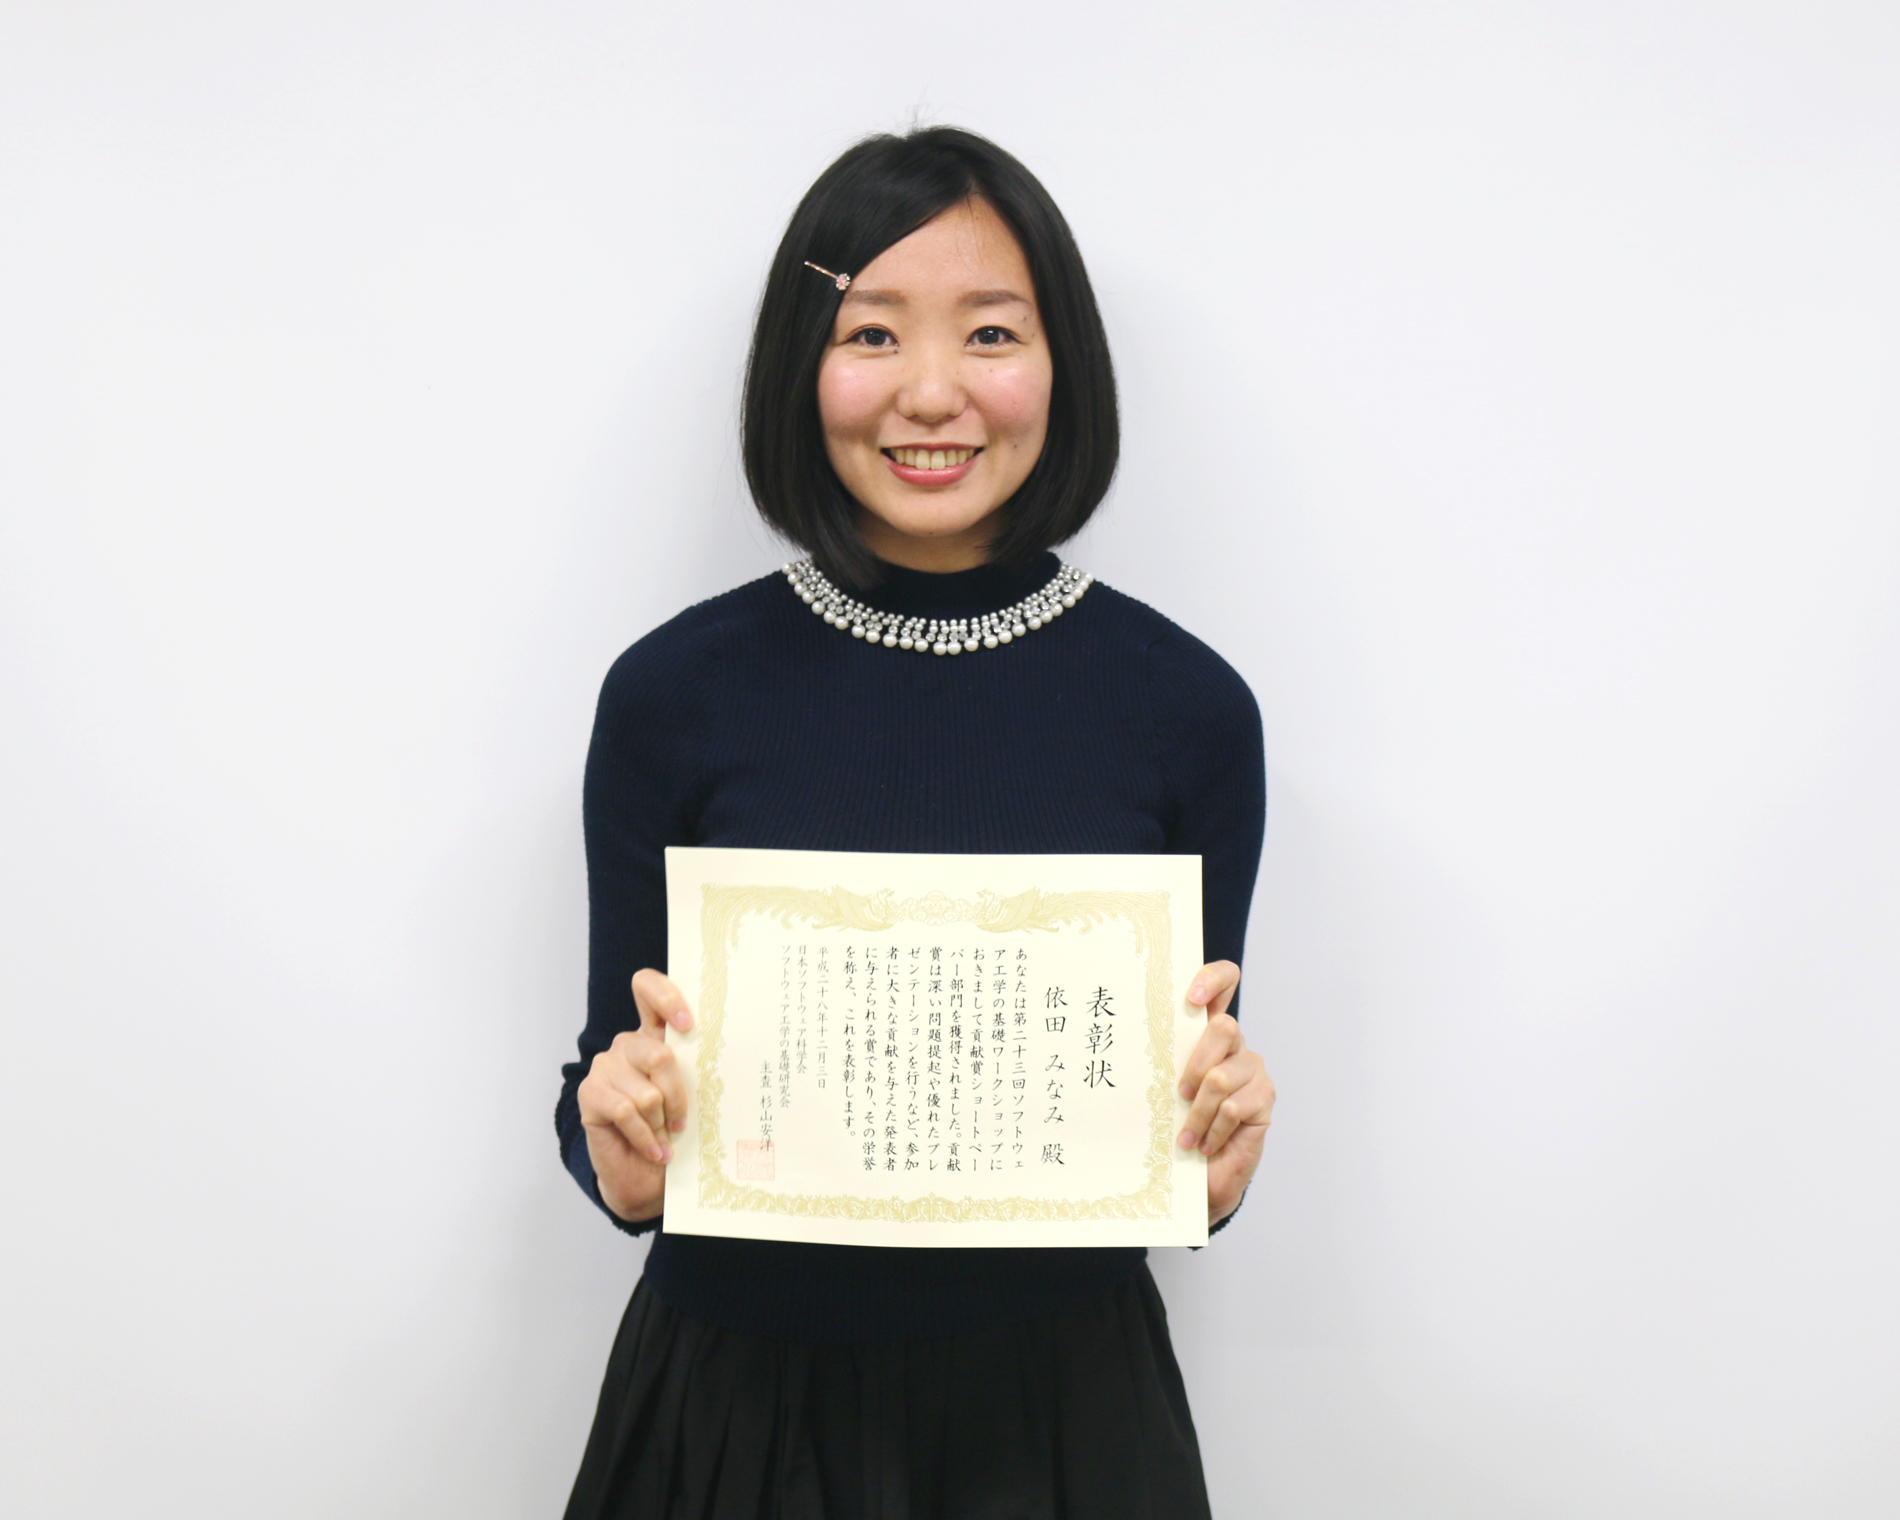 表彰状
依田 みなみ 殿
あなたは第二十三回ソフトウェ
ア工学の基礎ワークショップに
おきまして貢献賞ショートペー
パー部門を獲得されました。貢献
賞は深い問題提起や優れたプレ
ゼンテーションを行うなど、参加
者に大きな貢献を与えた発表者
に与えられる賞であり、その栄誉
を称え、これを表彰します。
平成二十八年十二月三日
日本ソフトウェア科学会
ソフトウェア工学の基礎研究会
主査 杉山安洋